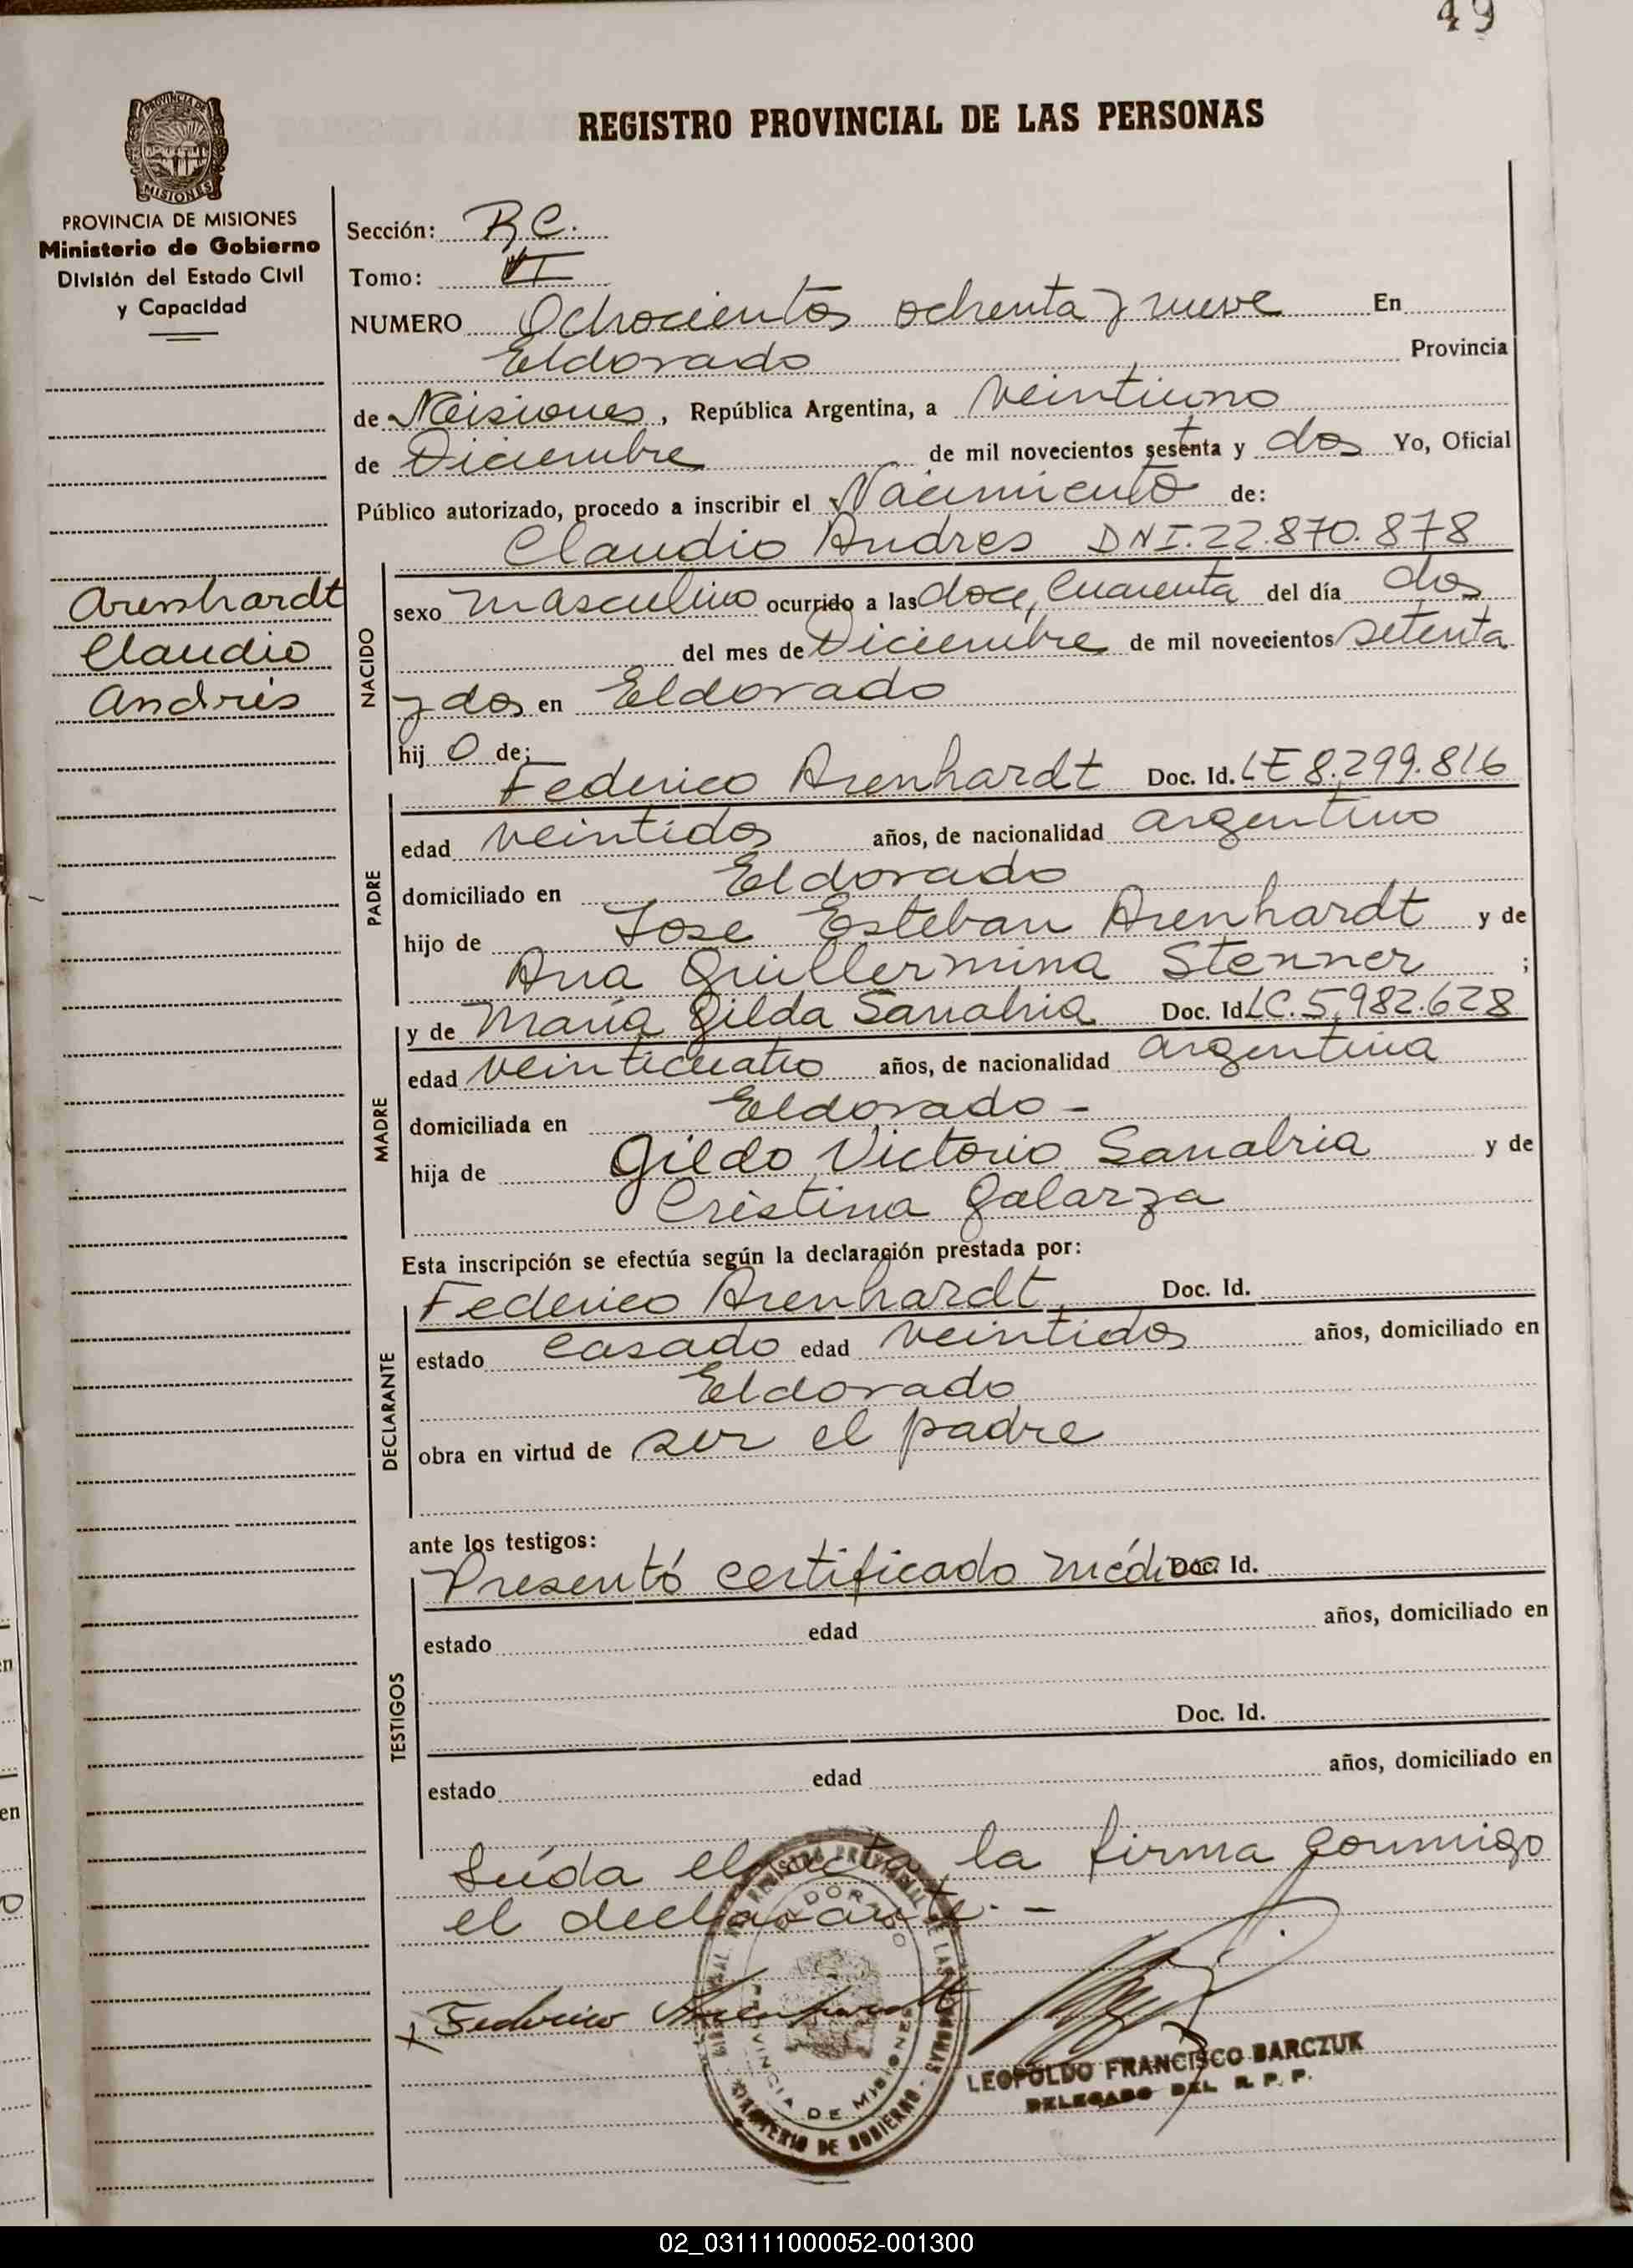 49
REGISTRO PROVINCIAL DE LAS PERSONAS
PROVINCIA DE MISIONES
MISIONES
PROVINCIA DE MISIONES
Ministerio de Gobierno
División del Estado Civil
y Capacidad
Sección: R.C.
Tomo: VI
NUMERO Ochocientos ochenta y nueve En
Eldorado Provincia
de Misiones, República Argentina, a veintiuno
de Diciembre de mil novecientos setenta y dos Yo, Oficial
Público autorizado, procedo a inscribir el Nacimiento de:
Claudio Andres DNI.22.870.878
Arenhardt
Claudio
Andrés
NACIDO
sexo masculino ocurrido a las doce, cuarenta del día dos
del mes de Diciembre de mil novecientos setenta
y dos en Eldorado
hij o de:
Federico Arenhardt Doc. Id. LE 8.299.816
PADRE
edad veintidos años, de nacionalidad argentino
domiciliado en Eldorado
hijo de Jose Esteban Arenhardt y de
Ana Guillermina Stenner ;
y de María Gilda Sanabria Doc. Id LC. 5.982.628
MADRE
edad veinticuatro años, de nacionalidad argentina
domiciliada en Eldorado -
hija de Gildo Victorio Sanabria y de
Cristina Galarza
Esta inscripción se efectúa según la declaración prestada por:
Federico Arenhardt, Doc. Id.
DECLARANTE
estado casado edad veintidos años, domiciliado en
Eldorado
obra en virtud de ser el padre
ante los testigos:
Presentó certificado médico Doc. Id.
TESTIGOS
estado edad años, domiciliado en
Doc. Id.
estado edad años, domiciliado en
Leída el acta, la firma conmigo
el declarante. -
x Federico Arenhardt
ELDORADO
PROVINCIA DE MISIONES
MINISTERIO DE GOBIERNO
LEOPOLDO FRANCISCO BARCZUK
DELEGADO DEL R. P. P.
02_031111000052-001300